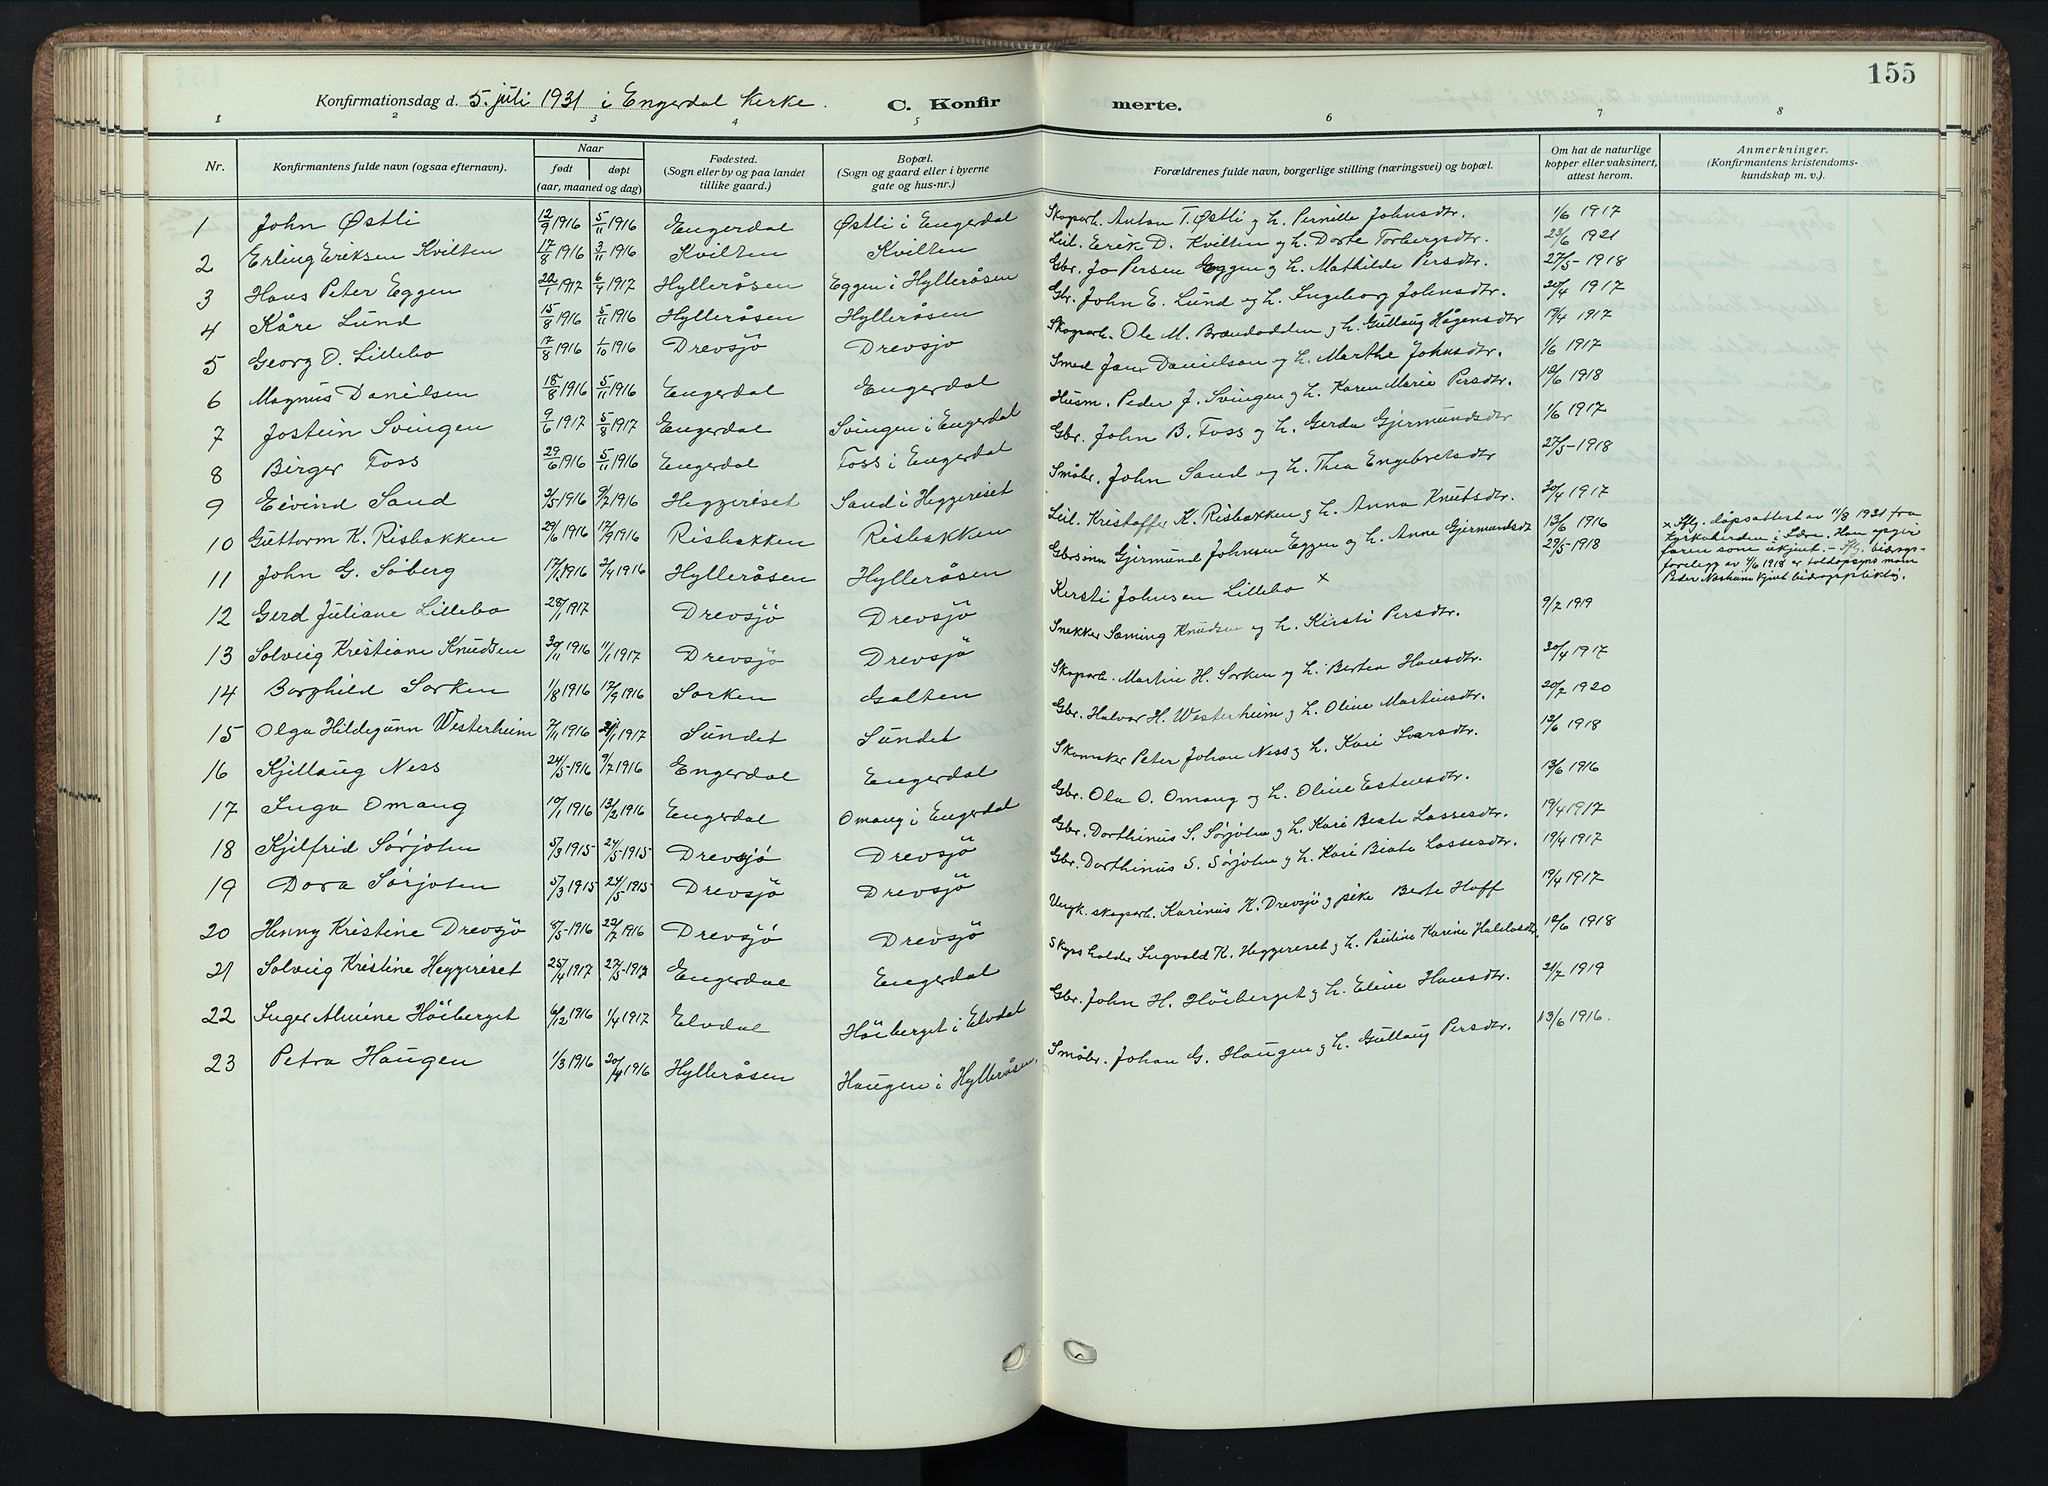 155
Konfirmationsdag d. 5. juli 1931 i Engerdal kirke. C. Konfir merte.
1 2 3 4 5 6 7 8
Nr. Konfirmantens fulde navn (ogsaa efternavn). Naar født døpt (aar, maaned og dag) Fødested. (Sogn eller by og paa landet tillike gaard.) Bopæl. (Sogn og gaard eller i byerne gate og hus-nr.) Forældrenes fulde navn, borgerlige stilling (næringsvei) og bopæl. Om hat de naturlige kopper eller vaksinert, attest herom. Anmerkninger. (Konfirmantens kristendoms-kundskap m. v.).
1 John Østli 12/9 1916 5/11 1916 Engerdal Østli i Engerdal Skogarb. Anton T. Østli og h. Pernille Johnsdtr. 1/6 1917
2 Erling Eriksen Kvilten 17/8 1916 3/11 1916 Kvilten Kvilten Leil. Erik D. Kvilten og h. Dorte Torbergsdtr. 23/6 1921
3 Hans Peter Eggen 22/1 1917 6/4 1917 Hylleråsen Eggen i Hylleråsen Gbr. Jo Persen Eggen og h. Mathilde Persdtr. 27/5-1918
4 Kåre Lund 15/8 1916 5/11 1916 Hylleråsen Hylleråsen Gbr. John E. Lund og h. Ingeborg Johnsdtr. 20/4 1917
5 Georg O. Lillebo 17/8 1916 1/10 1916 Drevsjö Drevsjö Skogarb. Ole M. Brændodden og h. Gullaug Hågensdtr 17/4 1917
6 Magnus Danielsen 18/8 1916 5/11 1916 Engerdal Engerdal Smed Jan Danielsen og h. Marthe Johnsdtr. 1/6 1917
7 Jostein Svingen 9/6 1917 5/8 1917 Engerdal Svingen i Engerdal Husm. Peder J. Svingen og h. Karen Marie Persdtr. 12/6 1918
8 Birger Foss 29/6 1916 5/11 1916 Engerdal Foss i Engerdal Gbr. John B. Foss og h. Gerda Gjermundsdtr 1/6 1917
9 Eivind Sand 3/5 1916 9/7 1916 Heggeriset Sand i Heggeriset Småbr. John Sand og h. Thea Engebretsdtr 27/5-1918
10 Guttorm K. Risbakken 29/6 1916 17/9 1916 Risbakken Risbakken Leil. Kristoffer K. Risbakken og h. Anna Knutsdtr. 20/4 1917
11 John G. Söberg 17/1 1916 2/4 1916 Hylleråsen Hylleråsen Gjermund Johnsen Eggen og h. Anne Gjermundsdt 13/6 1916
12 Gerd Juliane Lillebo 28/1 1917 Drevsjö Drevsjö Kersti Johnsen Lillebo x 29/5-1918 x Iflg. döpsattest av 11/8 1931 fra
kyrkoherden i Idre. Han opgir
faren som ukjent. - Iflg. bidrags-
forelegg av 1/6 1918 er toldopsynsmann
Peder kjent bidragspliktig.
13 Solveig Kristiane Knudsen 30/11 1916 1/1 1917 Drevsjö Drevsjö Snekker Sæming Knudsen og h. Kirsti Persdtr. 9/7 1919
14 Borghild Sorken 1/8 1916 17/9 1916 Sorken Galten Skogarb. Martin H. Sorken og h. Bertea Hansdtr. 20/4 1917
15 Olga Hildegunn Westerheim 7/11 1916 21/1 1917 Sundet Sundet Gbr. Halvor H. Westerheim og h. Oline Martinsdtr. 20/2 1920
16 Kjellaug Ness 24/5-1916 9/7 1916 Engerdal Engerdal Skomaker Peter Johan Ness og h. Kari Ivarsdtr. 12/6 1918
17 Inga Omang 10/1 1916 13/2 1916 Engerdal Omang i Engerdal Gbr. Ola O. Omang og h. Oline Estensdtr. 13/6 1916
18 Kjelfrid Sørjoten 5/3 1915 24/5-1915 Drevsjö Drevsjö Gbr. Dorthinus S. Sørjoten og h. Kari Beate Lassesdtr. 19/4 1917
19 Dora Sørjoten 5/3 1915 24/5 1915 Drevsjö Drevsjö Gbr. Dorthinus S. Sørjoten og h. Kari Beate Lassesdtr. 19/4 1917
20 Henny Kristine Drevsjö 8/5-1916 23/7 1916 Drevsjö Drevsjö Ungk. skogarb. Karinus K. Drevsjö og pike Berte Hoff 19/4 1917
21 Solveig Kristine Heggeriset 25/4 1917 27/5-1917 Engerdal Engerdal Skysholder Ingvald K. Heggeriset og h. Pauline Karine 12/6 1918
22 Inger Almine Höiberget 6/12 1916 1/4 1917 Elvdal Höiberget i Elvdal Gbr. John H. Höiberget og h. Eline Hansdtr. 21/7 1919
23 Petra Haugen 1/3 1916 20/4 1916 Hylleråsen Haugen i Hylleråsen. Småbr. Johan G. Haugen og h. Gullaug Persdtr. 13/6 1916.